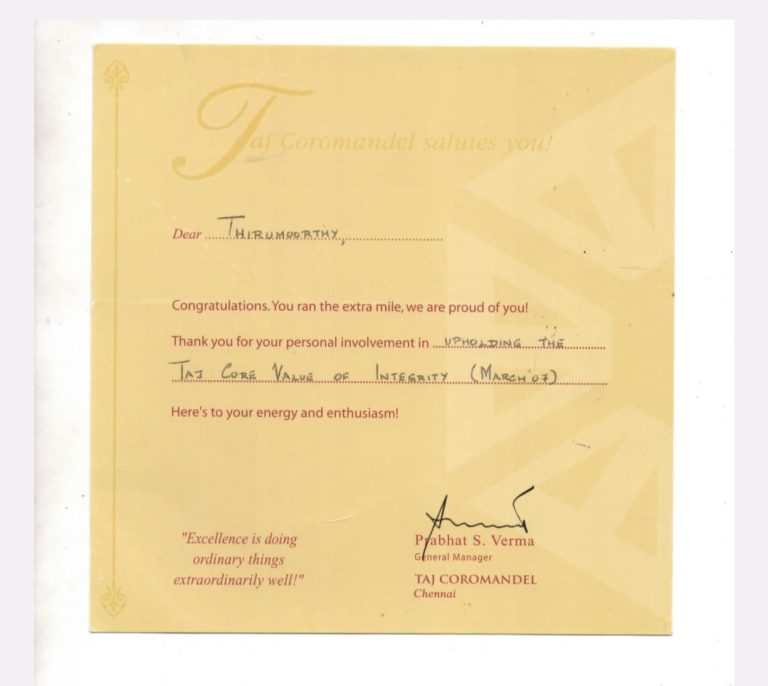 Taj Coromandel salutes you!
Dear THIRUMOORTHY,
Congratulations. You ran the extra mile, we are proud of you!
Thank you for your personal involvement in UPHOLDING THE
TAJ CORE VALUE OF INTEGRITY (MARCH'07)
Here's to your energy and enthusiasm!
"Excellence is doing
ordinary things
extraordinarily well!"
Prabhat S. Verma
General Manager
TAJ COROMANDEL
Chennai